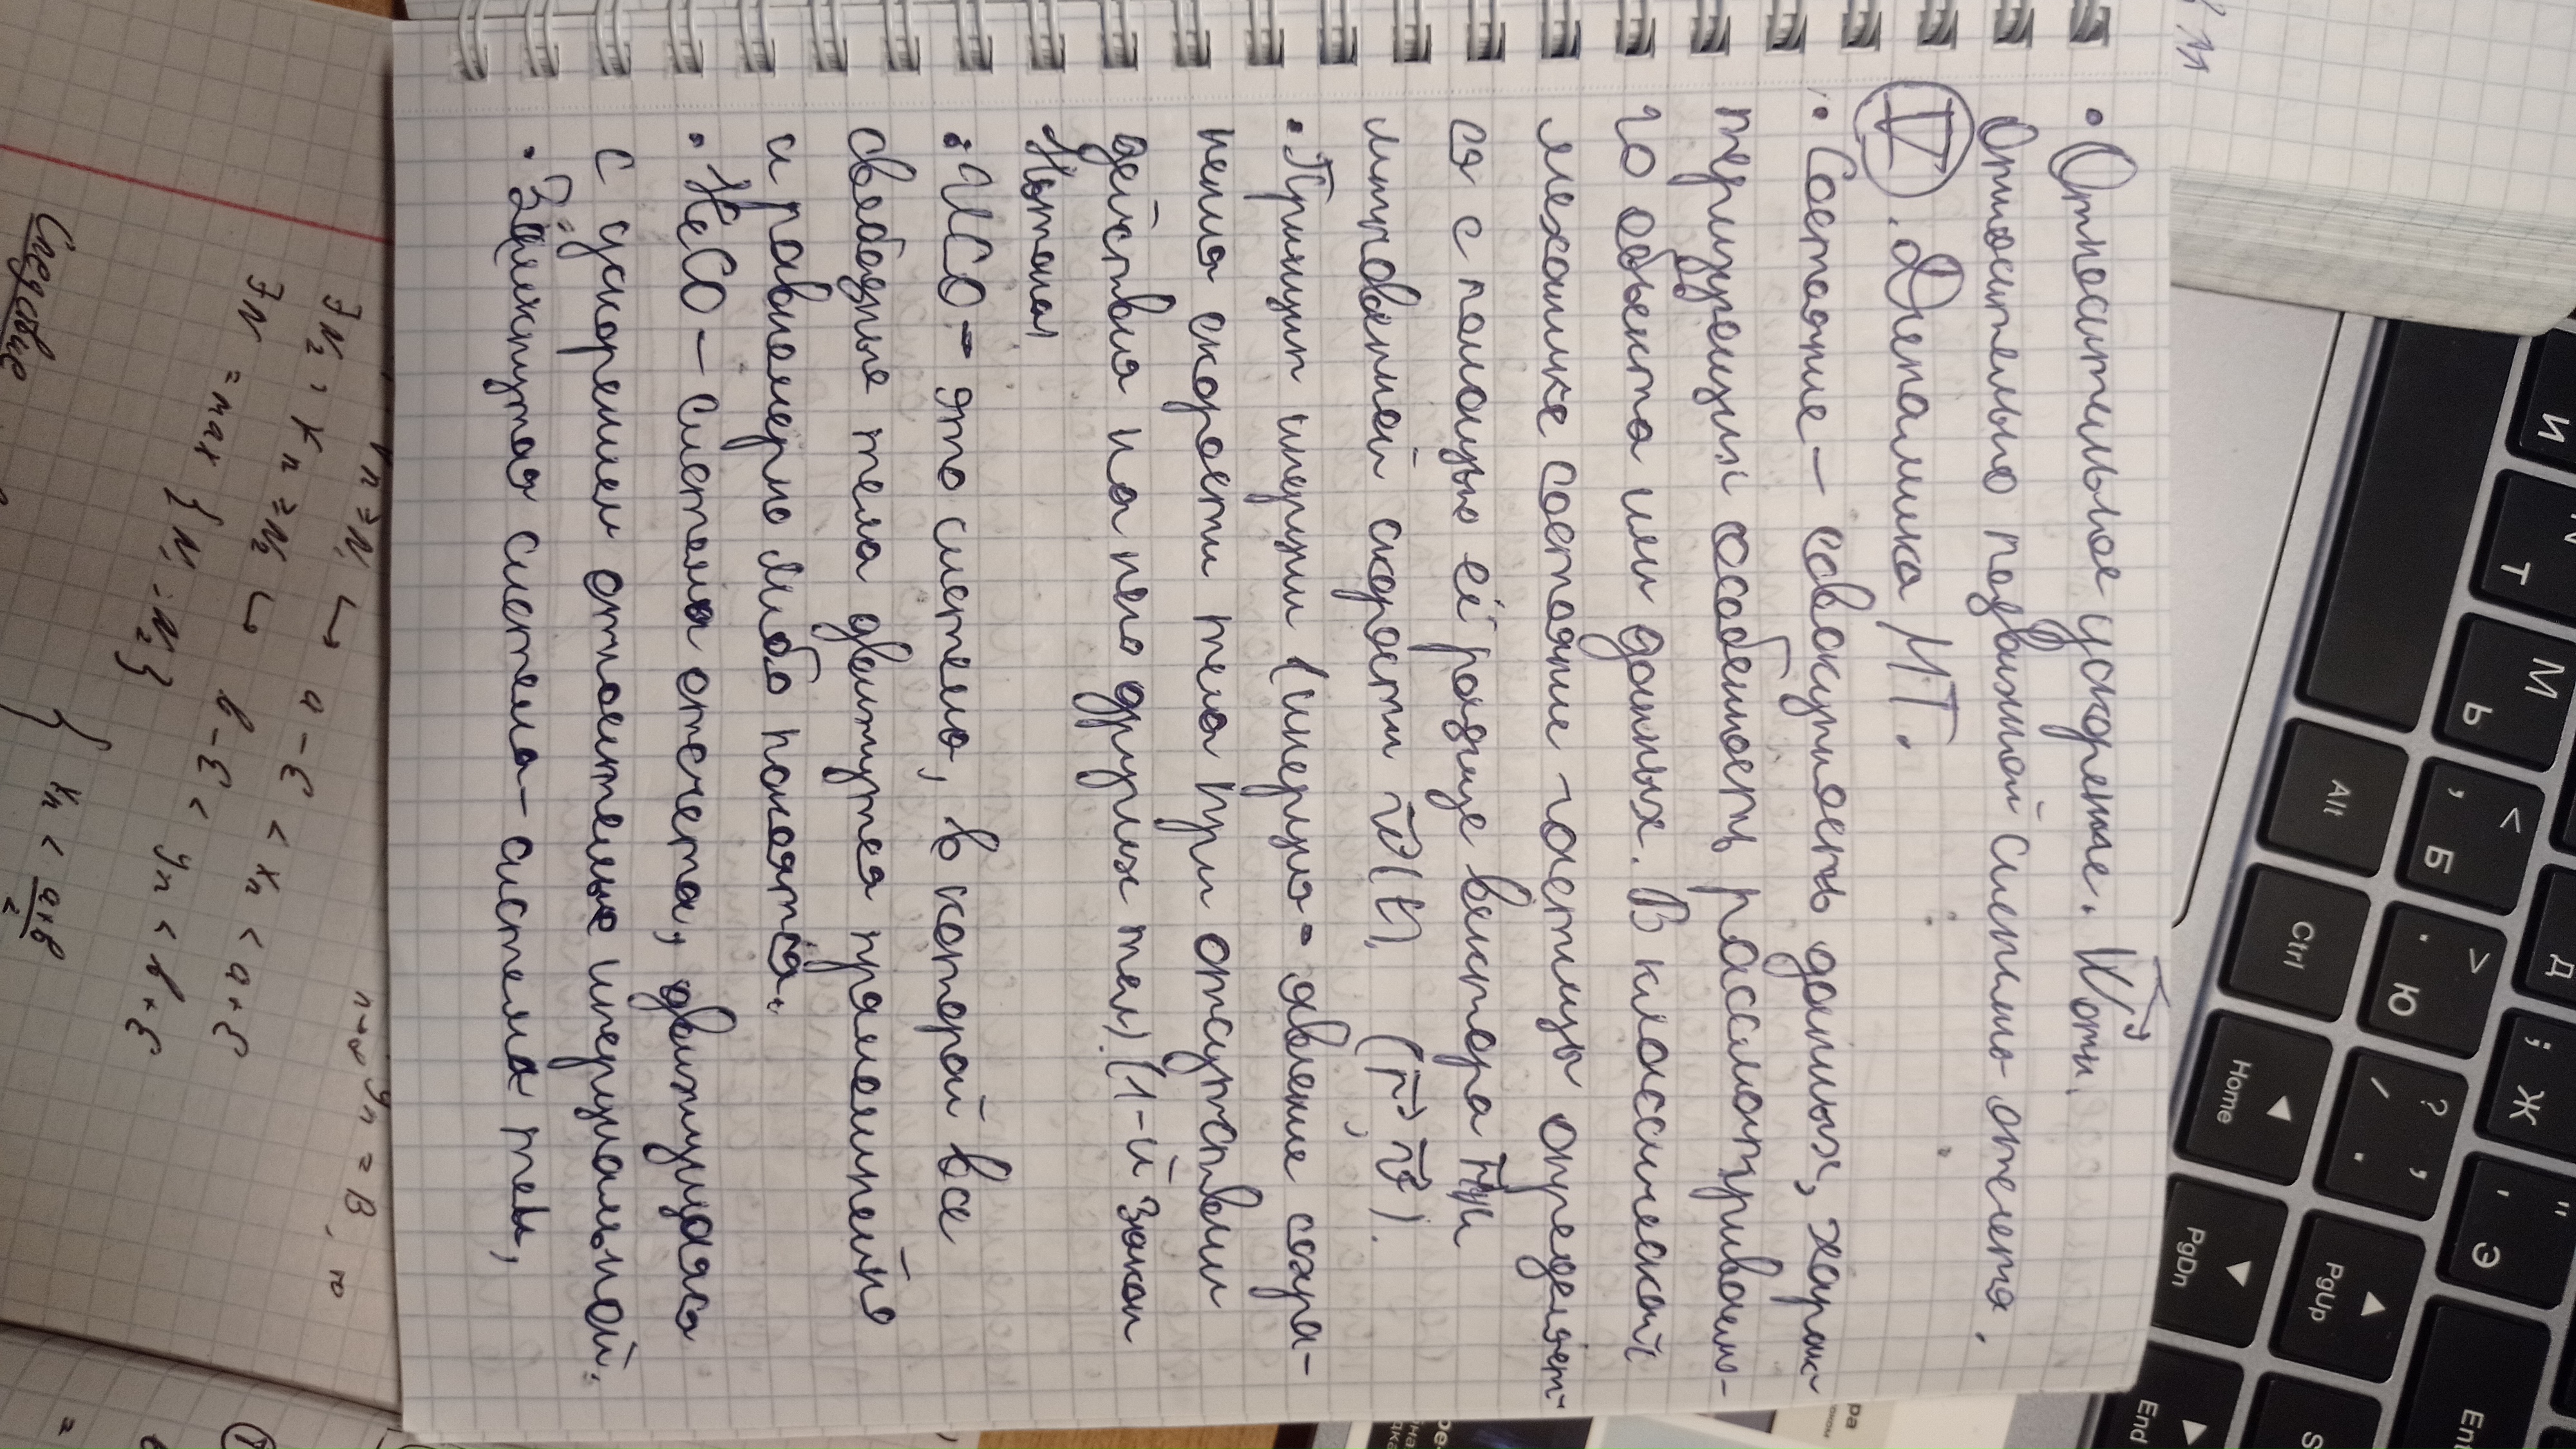 • Относительное ускорение. W⃗отн.
Относительно подвижной системы отсчета.
V. Динамика МТ.
• Состояние – совокупность данных, харак-
теризующих особенность рассматриваемо-
го объекта или данных. В классической
механике состояние частицы определяет-
ся с помощью её радиус вектора при
мгновенной скорости v⃗(t), (r⃗, v⃗).
• Принцип инерции (инерция - явление сохра-
нения скорости тела при отсутствии
действия на него других тел). (1-й закон
Ньютона)
• ИСО - это система, в которой все
свободные тела движутся прямолинейно
и равномерно либо покоятся.
• НеСО – система отсчета, движущаяся
с ускорением относительно инерциальной.
• Замкнутая система – система тел,
∀n ≥ N₁ ↪ a-ε < xn < a+ε
∃N₂, ∀n ≥ N₂ ↪ b-ε < yn < b+ε
∃N = max {N₁; N₂}
xn < a+b
2
Следствие
yn = B, то
n→∞
И
Т
М
Ь
Alt
<
, Б
Ctrl
>
. Ю
Д
Home
?
/ . ,
; Ж
PgDn
PgUp
" ' Э
End
Ent